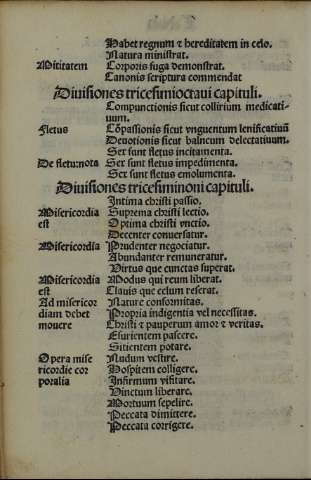 Habet regnum ⁊ hereditatem in celo.
Natura ministrat.
Mititatem Corporis fuga demonstrat.
Canonis scriptura commendat
Diuisiones tricesimioctaui capituli.
Compunctionis sicut collirium medicati-
uum.
Fletus Cōpassionis sicut vnguentum lenificatiuū
Deuotionis sicut balneum delectatiuum.
Sex sunt fletus incitamenta.
De fletu:nota Sex sunt fletus impedimenta.
Sex sunt fletus emolumenta.
Diuisiones tricesiminoni capituli.
Intima christi passio.
Misericordia Suprema christi lectio.
est Optima christi vnctio.
Decenter conuersatur.
Misericordia Prudenter negociatur.
Abundanter remuneratur.
Virtus que cunctas superat.
Misericordia Modus qui reum liberat.
est Clauis que celum reserat.
Ad misericor Nature conformitas.
diam debet Propria indigentia vel necessitas.
mouere Christi ⁊ pauperum amor ⁊ veritas.
Esurientem pascere.
Sitientem potare.
Opera mise Nudum vestire.
ricordie cor Hospitem colligere.
poralia Infirmum visitare.
Vinctum liberare.
Mortuum sepelire.
Peccata dimittere.
Peccata corrigere.